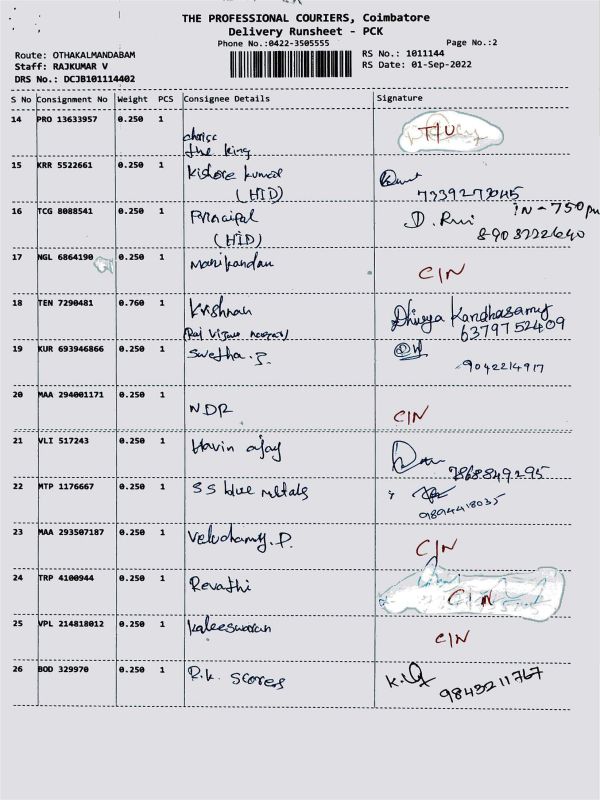 THE PROFESSIONAL COURIERS, Coimbatore
Delivery Runsheet - PCK
Phone No.:0422-3505555
Page No.:2
Route: OTHAKALMANDABAM
RS No.: 1011144
Staff: RAJKUMAR V
RS Date: 01-Sep-2022
DRS No.: DCJB101114402
S No Consignment No Weight PCS Consignee Details Signature
14 PRO 13633957 0.250 1 T/U
the king
15 KRR 5522661 0.250 1 Kishore kumar
(HID) 7339273045
16 TCG 8088541 0.250 1 Principal D. Rui IN - 750 pm
(HID) 8903222640
17 NGL 6864190 0.250 1 Manikandan C/N
18 TEN 7290481 0.760 1 Krishnan Dhivya Kandhasamy
6379752409
19 KUR 693946866 0.250 1 Swetha.
9042214917
20 MAA 294001171 0.250 1 NDR C/N
21 VLI 517243 0.250 1 Havin ajay
7868849295
22 MTP 1176667 0.250 1 SS blue metals
9894418035
23 MAA 293507187 0.250 1 Veluchamy.P. C/N
24 TRP 4100944 0.250 1 Revathi C/N
25 VPL 214818012 0.250 1 Kaleeswaran C/N
26 BOD 329970 0.250 1 R.K. Scores
9843211767